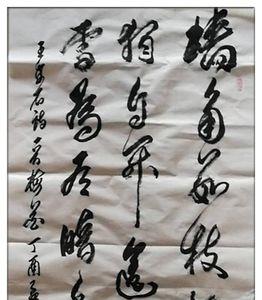 墙角数枝
独自开遥
雪为有暗
王安石诗一首梅花丁酉